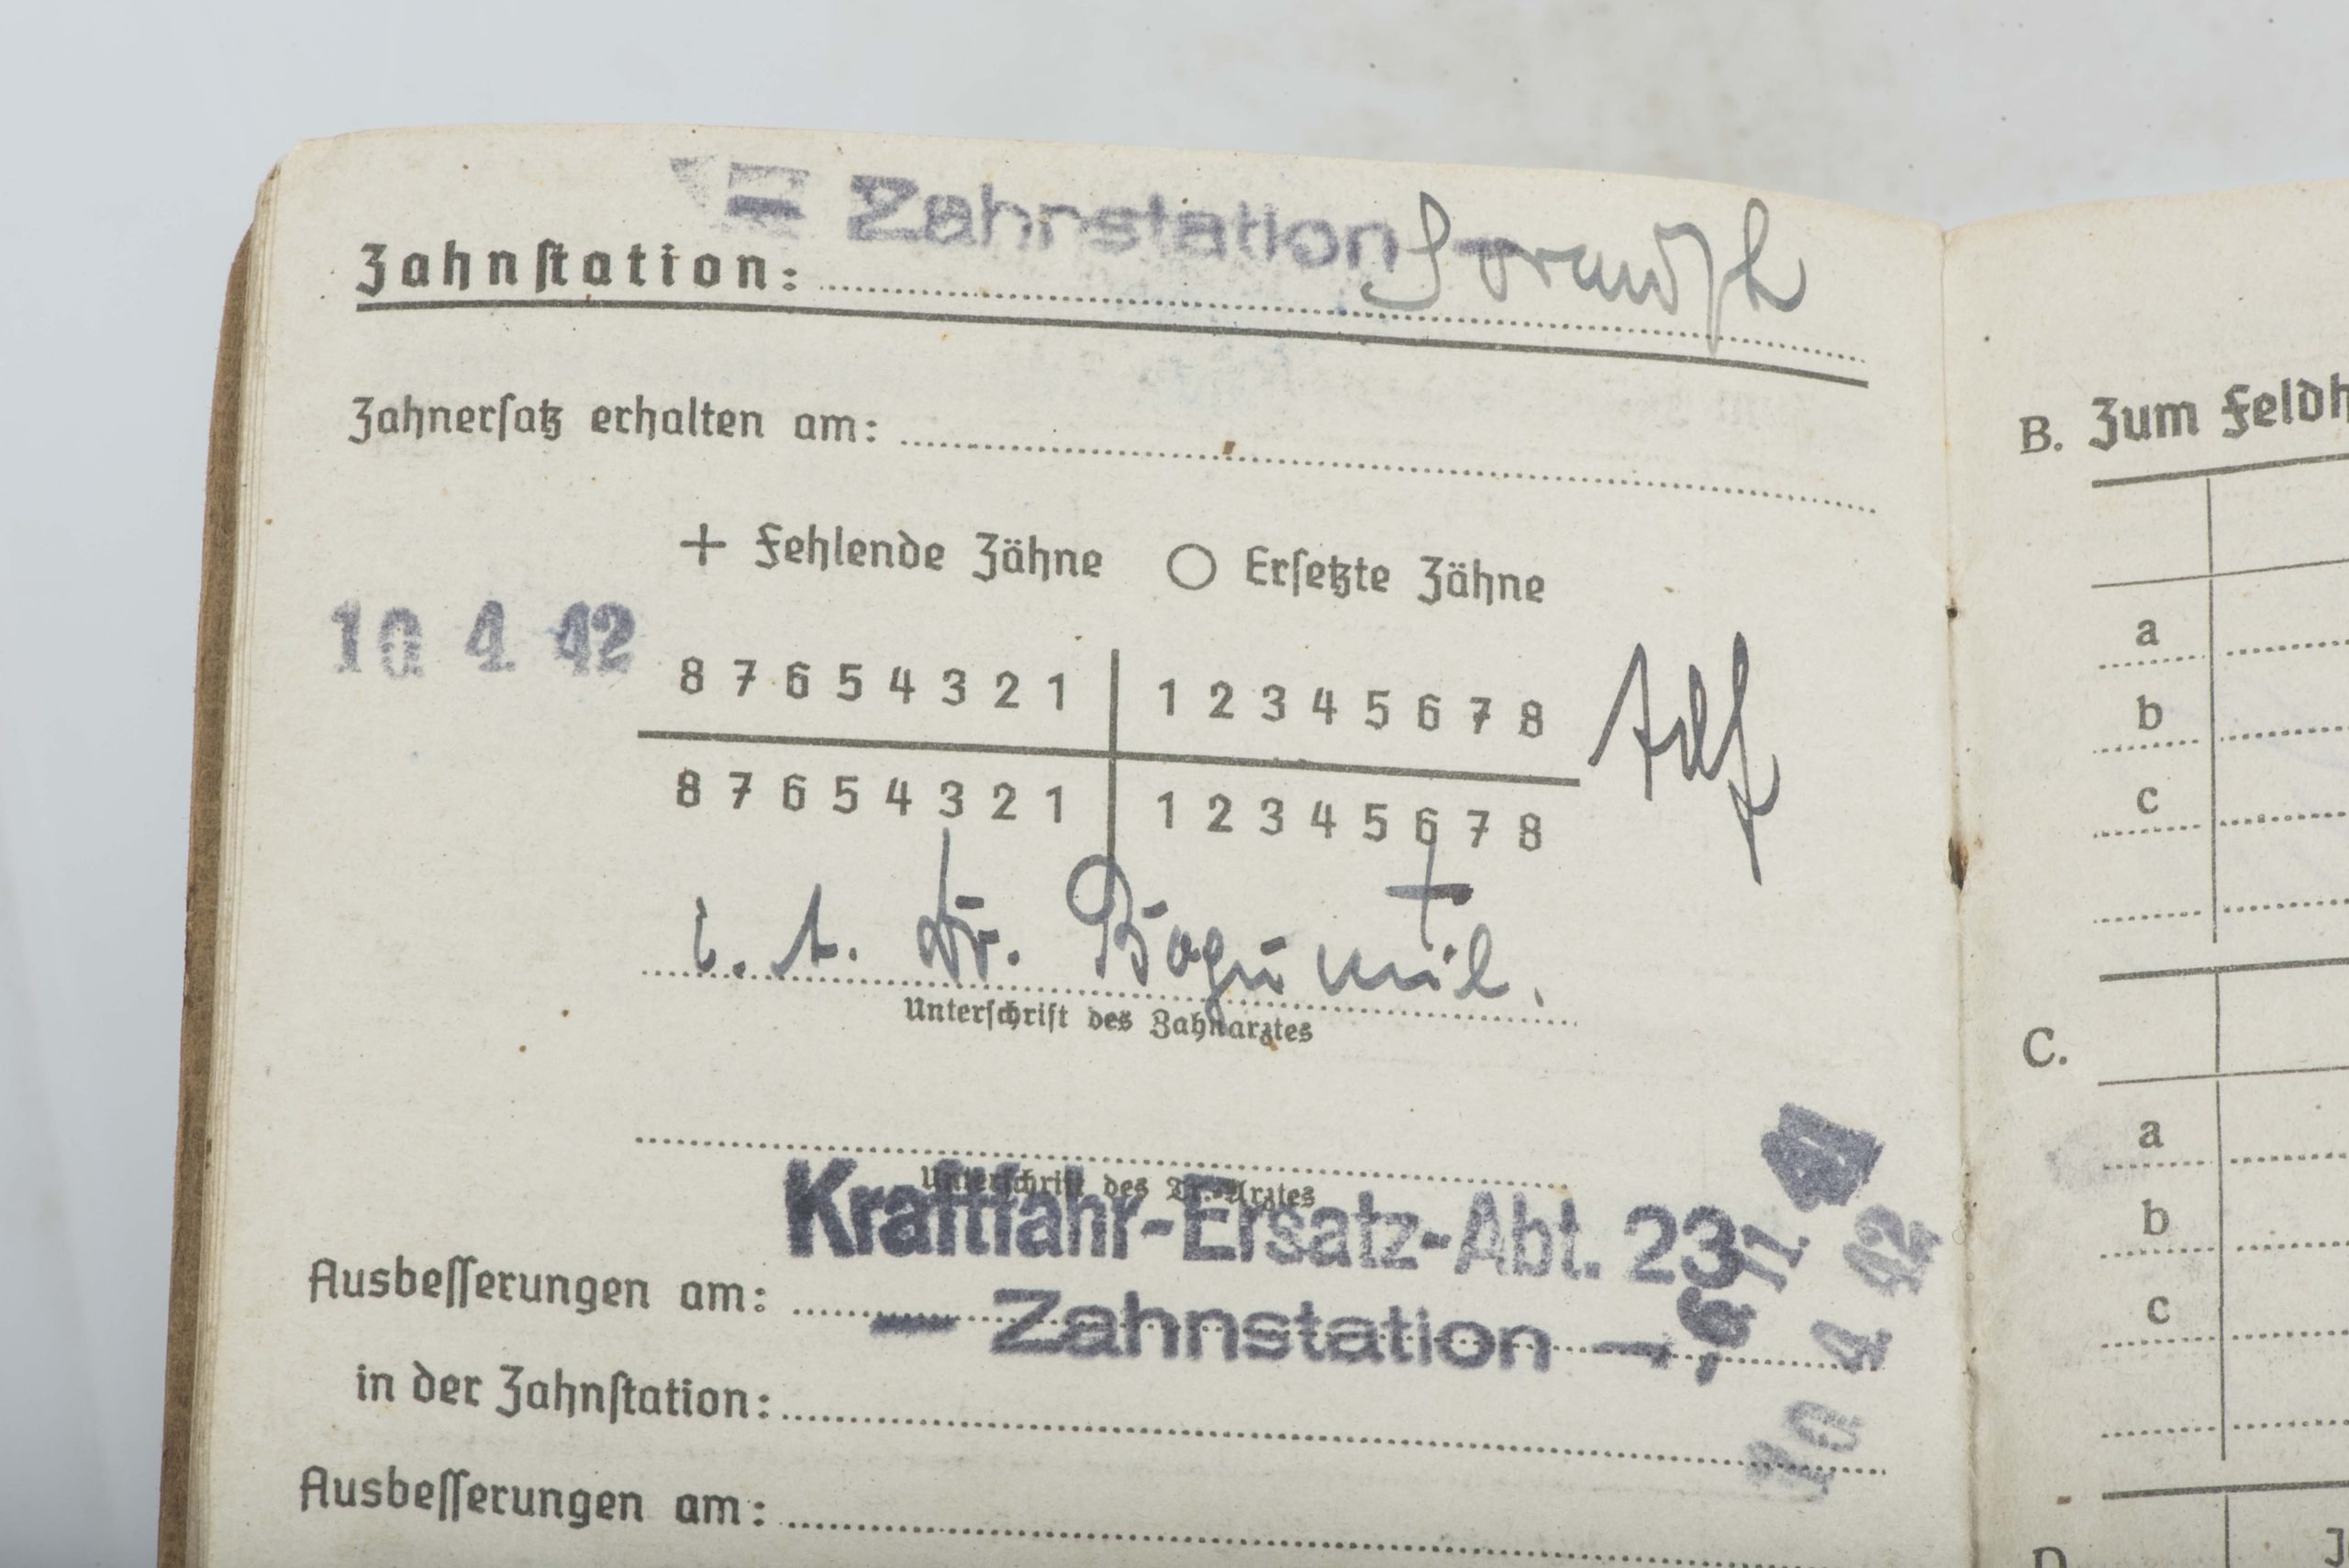 = Zahnstation -
Zahnstation:
Zahnersatz erhalten am:
+ Fehlende Zähne ○ Ersetzte Zähne
10 4 42
8 7 6 5 4 3 2 1 | 1 2 3 4 5 6 7 8
8 7 6 5 4 3 2 1 | 1 2 3 4 5 6 7 8
+
Dr. Bogumil.
Unterschrift des Zahnarztes
Unterschrift des Tr.-Arztes
Kraftfahr-Ersatz-Abt. 23
Ausbesserungen am:
- Zahnstation -
10 4 42
in der Zahnstation:
Ausbesserungen am:
B. Zum Feldh
a
b
c
C.
a
b
c
D